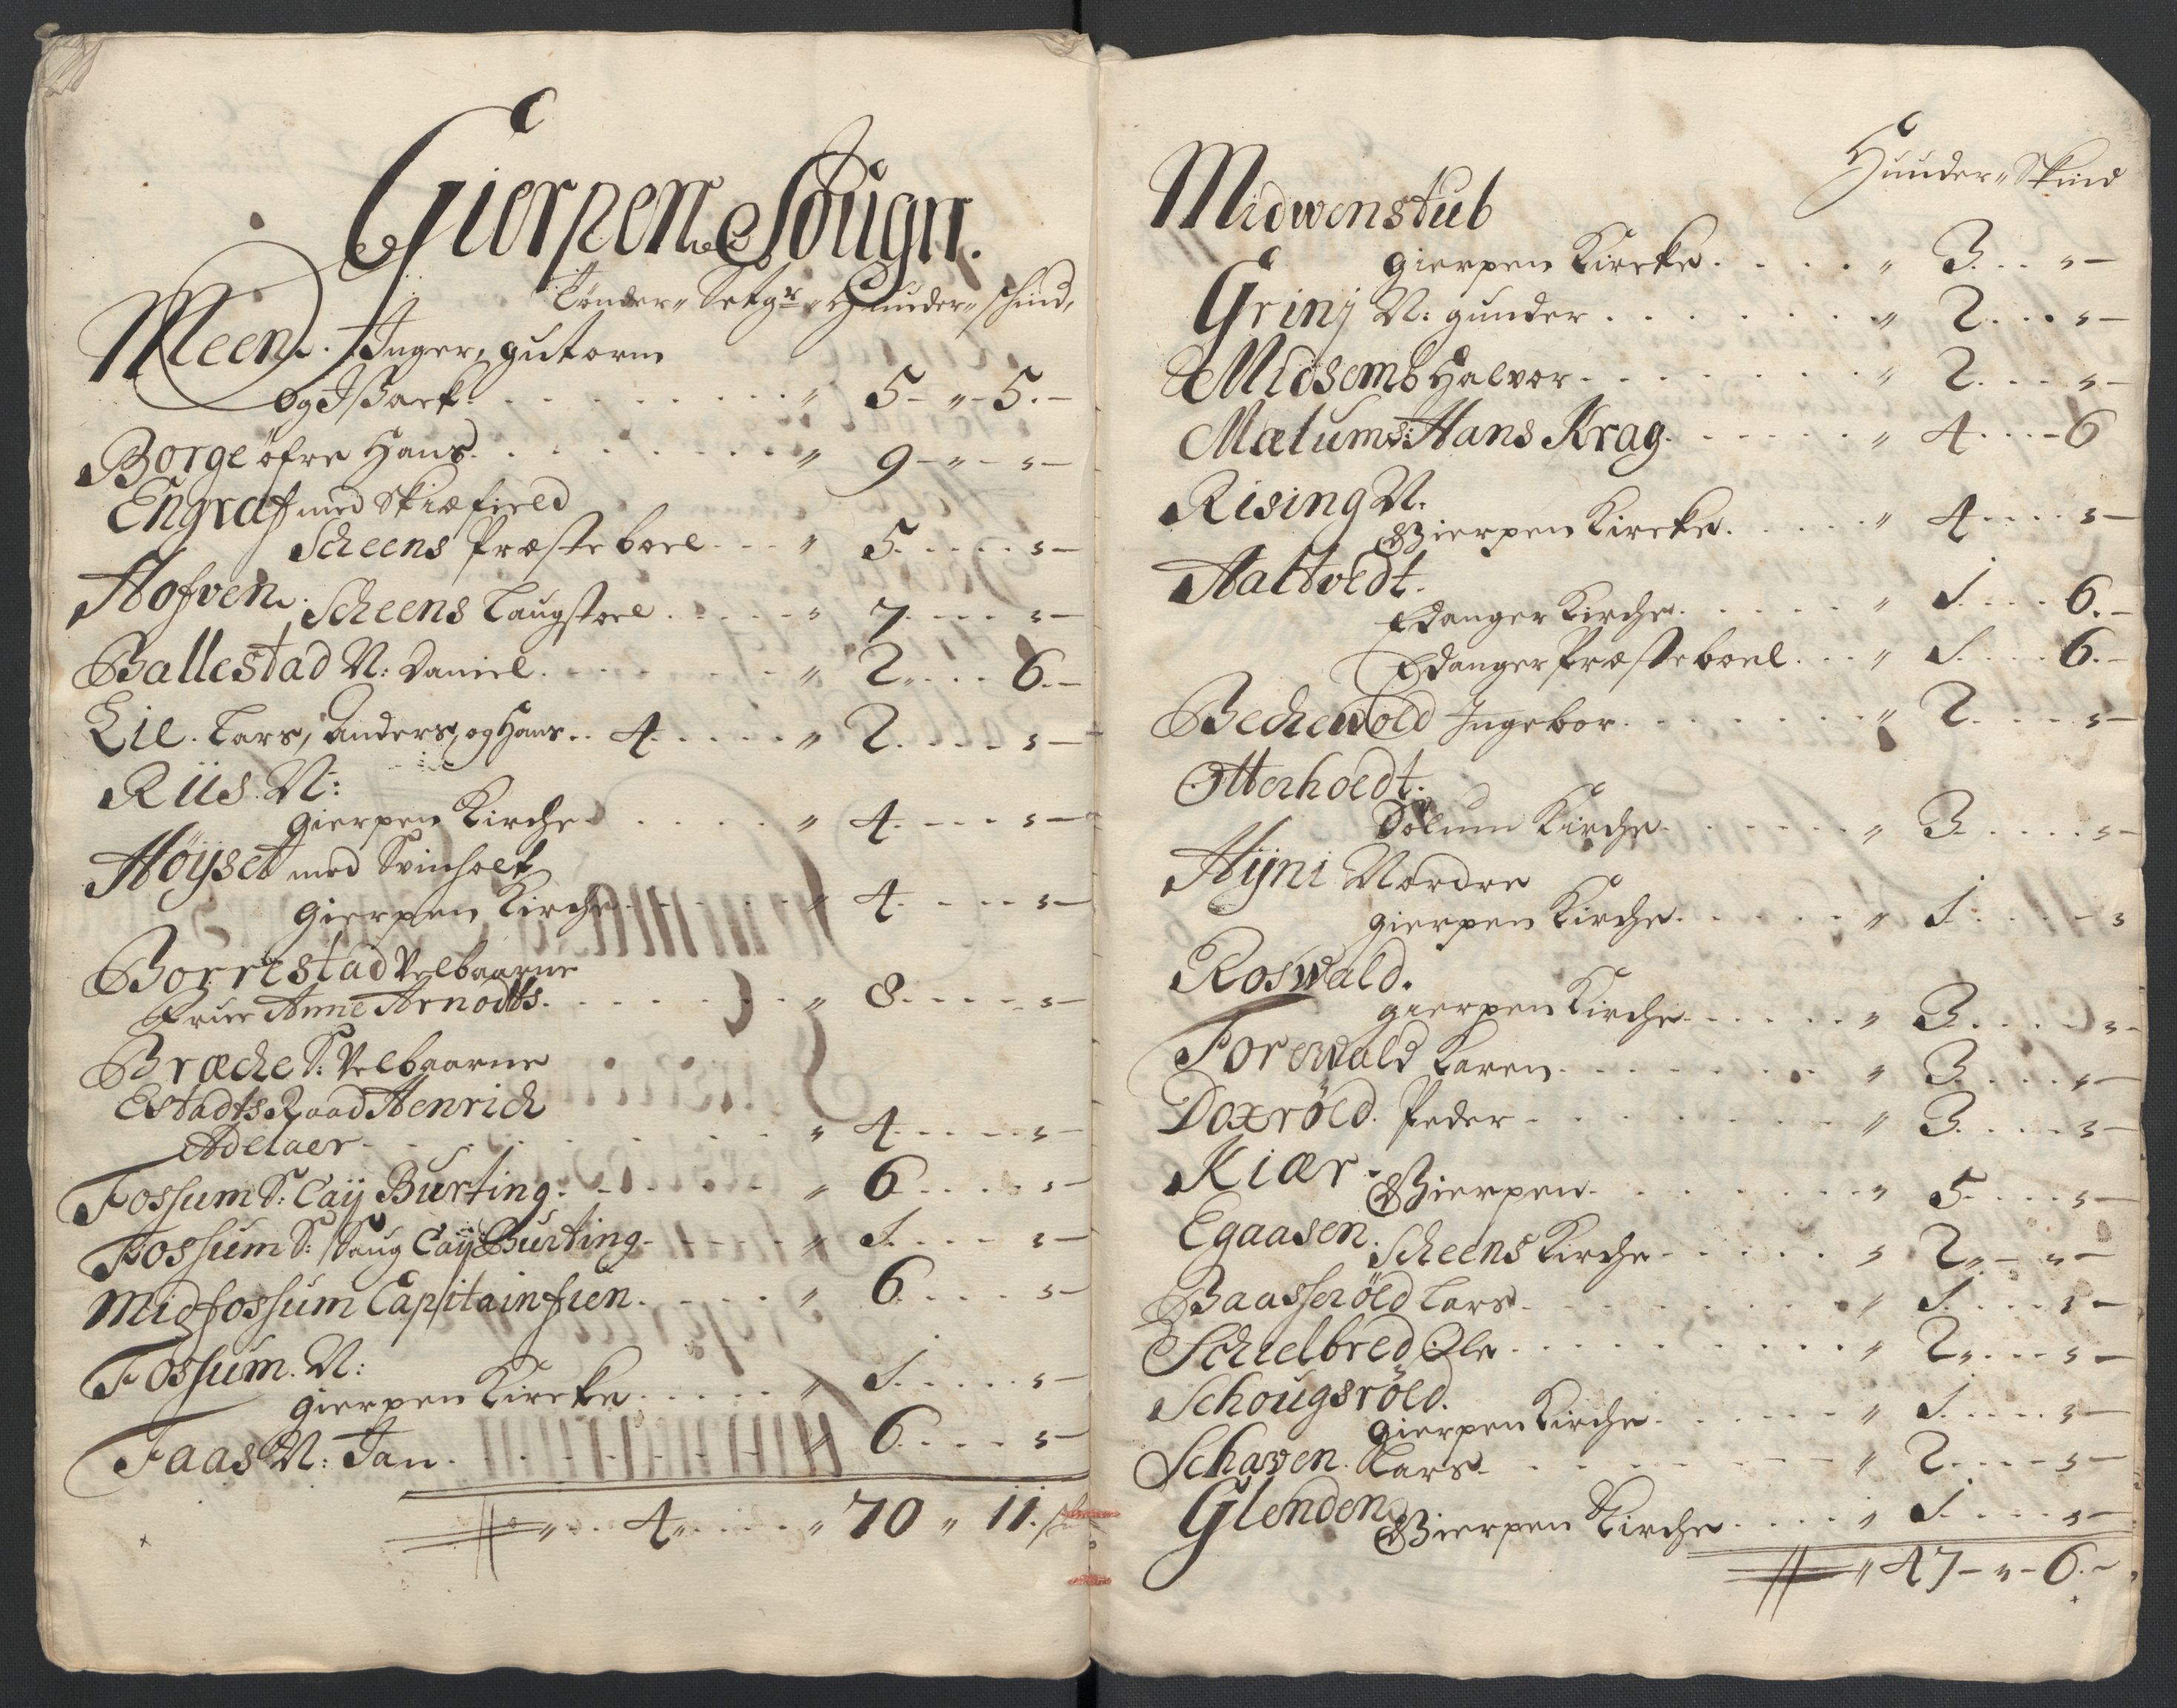 Gierpen Sougn.
Tønder " Setgr " Huuder " skind,
Meen. Inger, gutorm
og Issack. . . . " 5 - " - 5. -
Borge öfre Hans. . . . " 9 - " - " -
Engraf med Skiæfield
Scheens Præsteboel - - - " 5. . . . " -
Hofven. Scheens Laugstoel . . . . " 7. . . . " -
Ballestad N: Daniel. . . . " 2. . . . 6. -
Lie. Lars, Anders, og Hans. . 4. . . . " 2. . . . " -
Riis. N:
gierpen Kirche . . . . " 4. . . . " -
Höyset med Svinholt
gierpen Kirche . . . . " 4. . . . " -
Borrestad Velbaarne
Frue Anne Arnodts. . . . " 8. . . . " -
Bræche S: Velbaarne
Estadts Raad Henrich
Adelaer . . . . " 4. . . . " -
Fossum S: Caij Burting. . . . " 6. . . . " -
Fossum S: Saug Caij Burting - . . . " 1. . . . " -
Midfossum Capitain fien. . . . " 6. . . . " -
Fossum. N:
gierpen Kircke . . . . " 1. . . . " -
Faas N: Jan. . . . " 6. . . . " -
" . . 4. . . . " 70 " 11. sk
Huuder " Skind
Midwenstub
gierpen Kircke. . . . " 3. . . " -
Grinj N: gunder . . . . " 2. . . . " -
Midsemb Halvor . . . . " 2. . . . " -
Mælum S: Hans Krag. . . . " 4. . . - 6
Rising N.
Gierpen Kircke. . . . " 4. . . . " -
Haltvedt.
Edanger Kirche. . . . " 1. . . . 6. -
Edanger Præsteboel. . . " 1. . . . 6. -
Bechevold Ingebor. . . . " 2. . . . " -
Otterholdt.
Solum Kirche. . . . " 3. . . . " -
Hÿni Nordre
gierpen Kirche. . . . " 1. . . . - "
Roswald.
gierpen Kirche. . . . " 3. . . . " -
Forewald Karen. . . . " 3. . . . " -
Doxröld. Peder . . . . " 3. . . . " -
Kiær. Gierpen. . . . " 5. . . . " -
Egaasen. Scheens Kirche . . . . " 2. - " -
Baasseröld Lars. . . . " 1. . . . " -
Schielbred Ole . . . . " 2. . . . " -
Schougsröld.
gierpen Kirche. . . . " 1. . . . " -
Schaven. Lars. . . . " 2. . . . " -
Glenden. Gierpen Kirche. . . . " 1. . . . " -
" 47 - " - 6. -